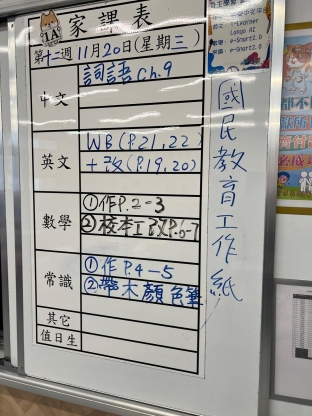 1A
家課表
第十二週 11月20日(星期三)
中文
詞語 Ch.9
英文
WB(P.21,22)
+改(P.19,20)
數學
①作P.2-3
②校本工改P.6-7
常識
①作P.4-5
②帶木顏色筆
其它
值日生
國民教育工作紙